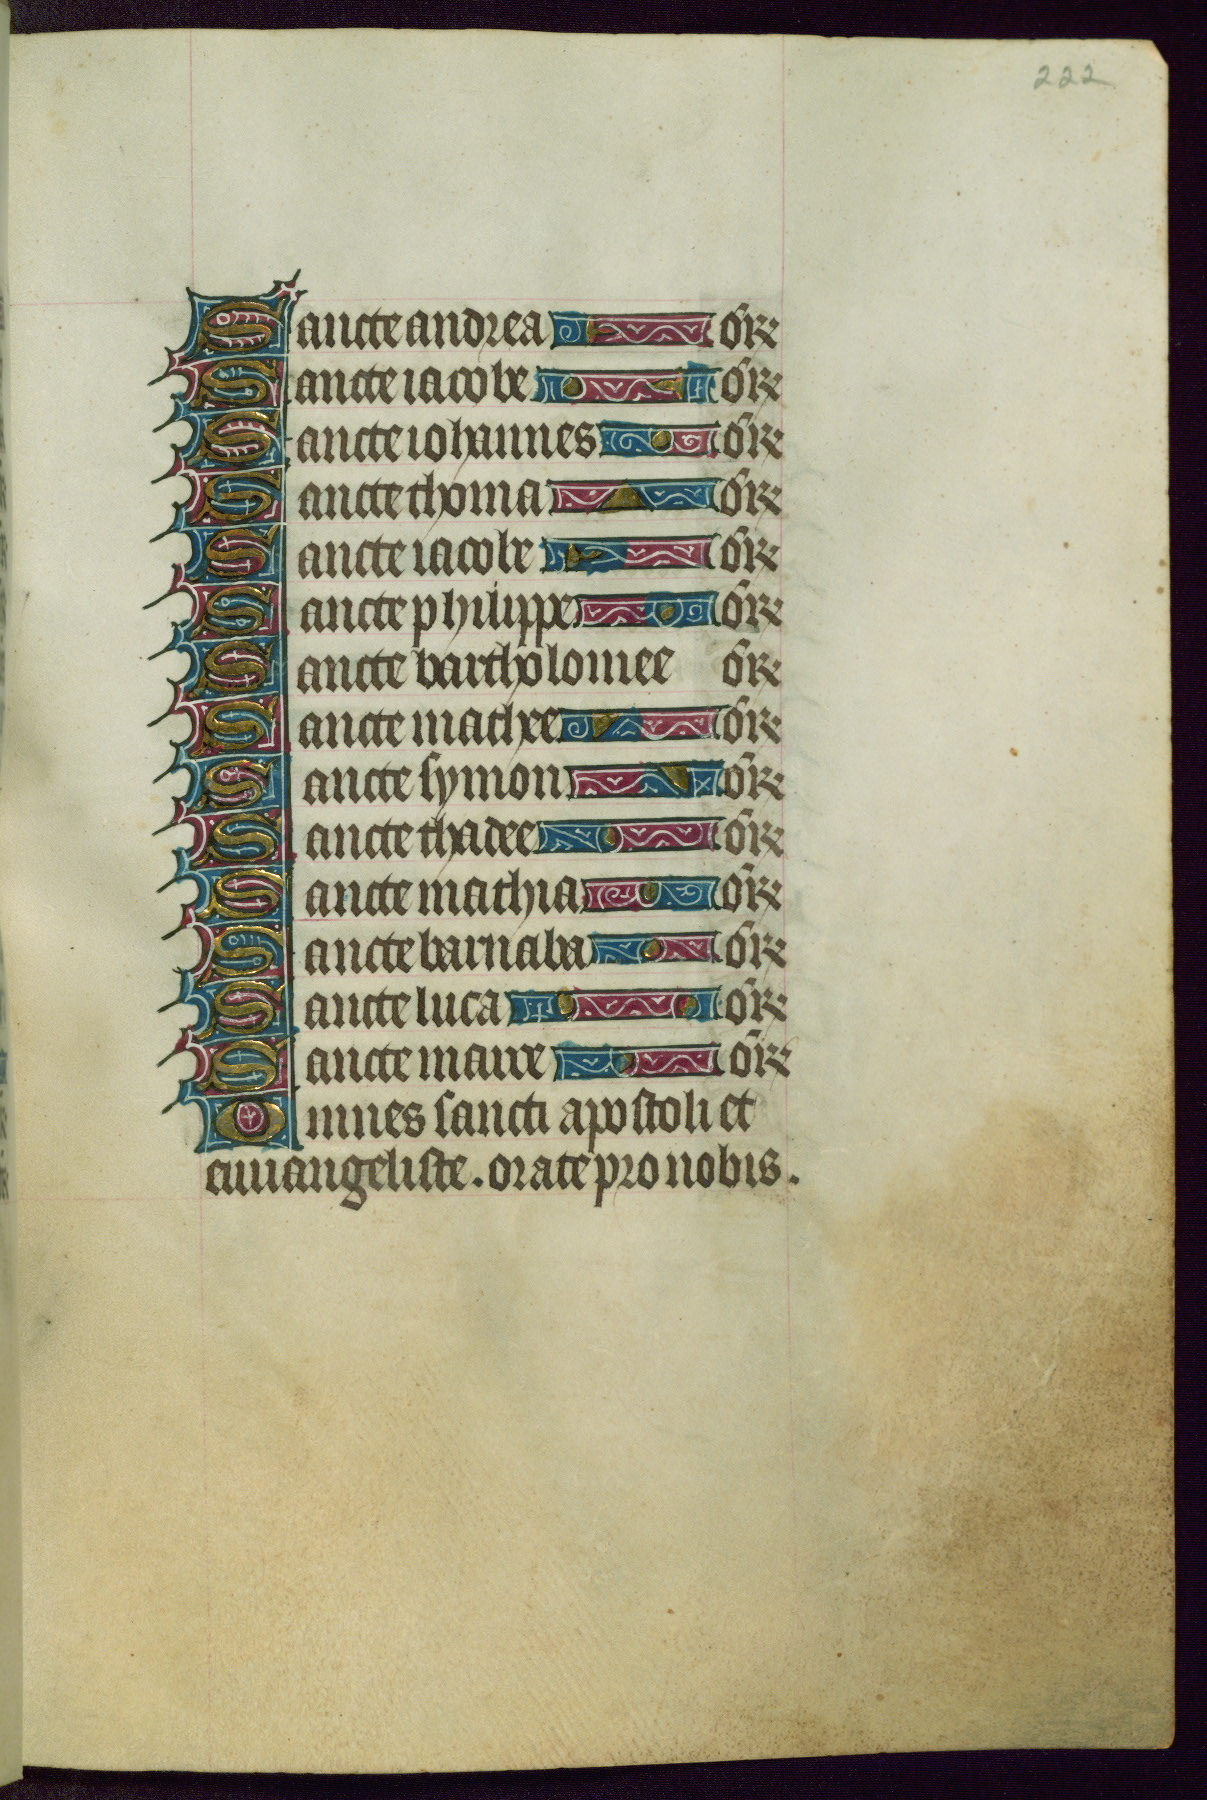 222
Sancte andrea or
Sancte iacobe or
Sancte iohannes or
Sancte thoma or
Sancte iacobe or
Sancte philippe or
Sancte bartholomee or
Sancte mathee or
Sancte symon or
Sancte thadee or
Sancte mathia or
Sancte barnaba or
Sancte luca or
Sancte marce or
Omnes sancti apostoli et
euuangeliste. orate pro nobis.